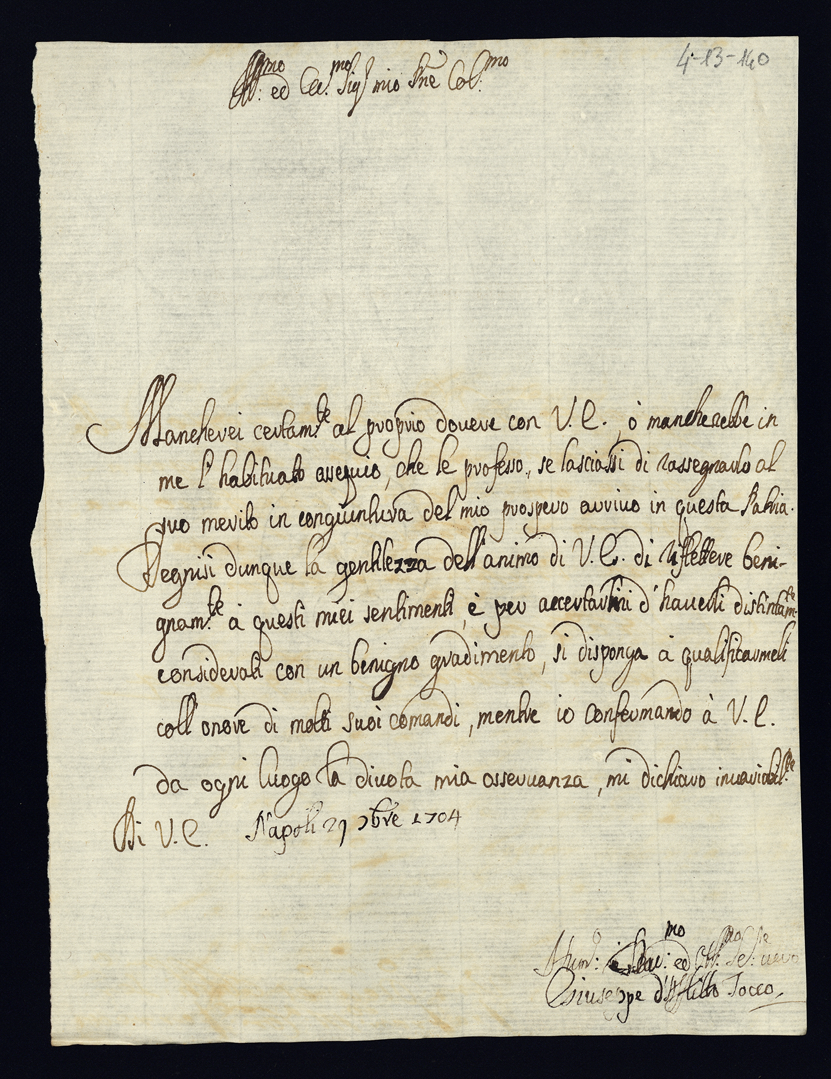 4-13-140
Ill.mo ed Ecc.mo Sig.r mio P.ne Col.mo
Mancherei certam.te al proprio dovere con V.E., ò mancherebbe in
me l'habituato ossequio, che le professo, se lasciassi di rassegnarlo al
suo merito in congiuntura del mio prospero arrivo in questa Patria.
Degnisi dunque la gentilezza dell'animo di V.E. di riflettere beni-
gnam.te à questi miei sentimenti, è per accertarmi d'haverli distintam.te
considerati con un benigno gradimento, si disponga à qualificarmeli
coll'onore di molti suoi comandi, mentre io confermando à V.E.
da ogni luogo la divota mia osservanza, mi dichiaro invariabil.te
Di V.E. Napoli 29 9bre 1704
ed Obb.mo Se.re vero
Giuseppe d'Afflitto Tocco